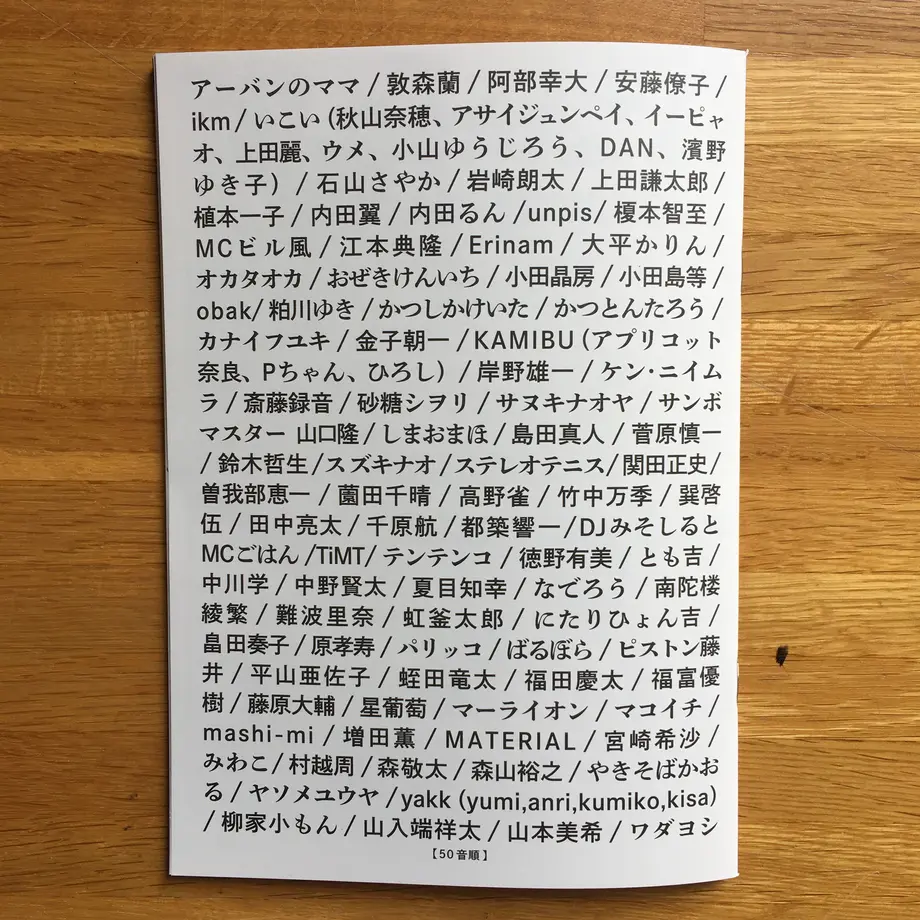 アーバンのママ / 敦森蘭 / 阿部幸大 / 安藤僚子 /
ikm / いこい (秋山奈穂、アサイジュンペイ、イーピャ
オ、上田麗、ウメ、小山ゆうじろう、DAN、濱野
ゆき子) / 石山さやか / 岩崎朗太 / 上田謙太郎 /
植本一子 / 内田翼 / 内田るん /unpis/ 榎本智至 /
MCビル風 / 江本典隆 / Erinam / 大平かりん /
オカタオカ / おぜきけんいち / 小田晶房 / 小田島等 /
obak/ 粕川ゆき / かつしかけいた / かつとんたろう /
カナイフユキ / 金子朝一 / KAMIBU (アプリコット
奈良、Pちゃん、ひろし) / 岸野雄一 / ケン・ニイム
ラ / 斎藤録音 / 砂糖シヲリ / サヌキナオヤ / サンボ
マスター 山口隆 / しまおまほ / 島田真人 / 菅原慎一
/ 鈴木哲生 / スズキナオ / ステレオテニス / 関田正史 /
曽我部恵一 / 薗田千晴 / 高野雀 / 竹中万季 / 巽啓
伍 / 田中亮太 / 千原航 / 都築響一 / DJみそしると
MCごはん /TiMT/ テンテンコ / 徳野有美 / とも吉 /
中川学 / 中野賢太 / 夏目知幸 / なでろう / 南陀楼
綾繁 / 難波里奈 / 虹釜太郎 / にたりひょん吉 /
畠田奏子 / 原孝寿 / パリッコ / ばるぼら / ピストン藤
井 / 平山亜佐子 / 蛭田竜太 / 福田慶太 / 福富優
樹 / 藤原大輔 / 星葡萄 / マーライオン / マコイチ /
mashi-mi / 増田薫 / MATERIAL / 宮崎希沙 /
みわこ / 村越周 / 森敬太 / 森山裕之 / やきそばかお
る / ヤソメユウヤ / yakk (yumi,anri,kumiko,kisa)
/ 柳家小もん / 山入端祥太 / 山本美希 / ワダヨシ
【50音順】